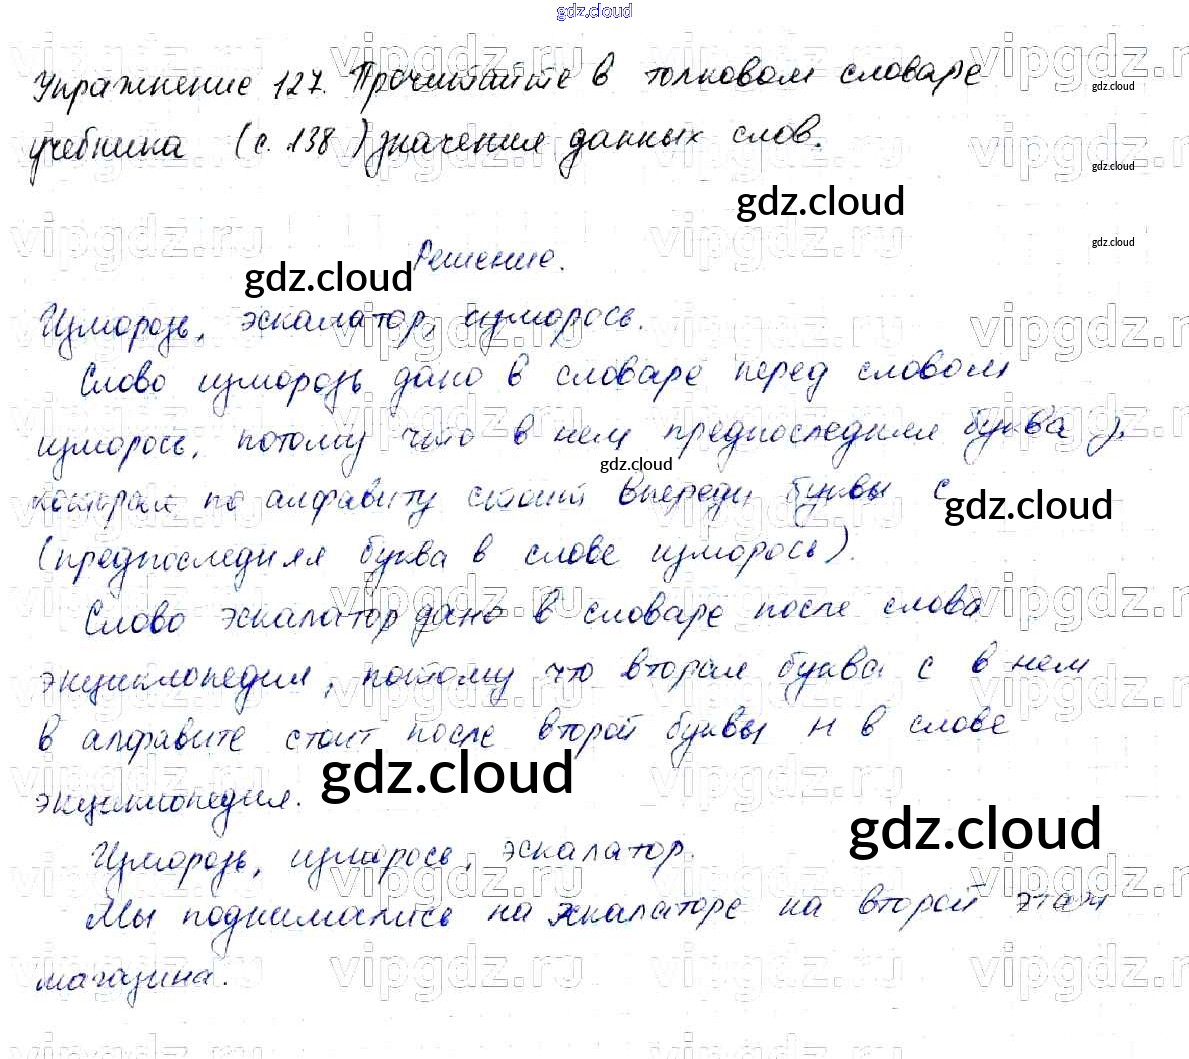 gdz.cloud
Упражнение 127. Прочитайте в толковом словаре
gdz.cloud
учебника (с. 138) значения данных слов.
gdz.cloud
gdz.cloud
gdz.cloud
Решение.
gdz.cloud
Изморозь, эскалатор, изморось.
Слово изморозь дано в словаре перед словом
изморось, потому что в нем предпоследняя буква з,
gdz.cloud
которая по алфавиту стоит впереди буквы с
gdz.cloud
(предпоследняя буква в слове изморось).
Слово эскалатор дано в словаре после слова
энциклопедия, потому что вторая буква с в нем
в алфавите стоит после второй буквы н в слове
gdz.cloud
энциклопедия.
gdz.cloud
Изморозь, изморось, эскалатор.
Мы поднимались на эскалаторе на второй этаж
магазина.